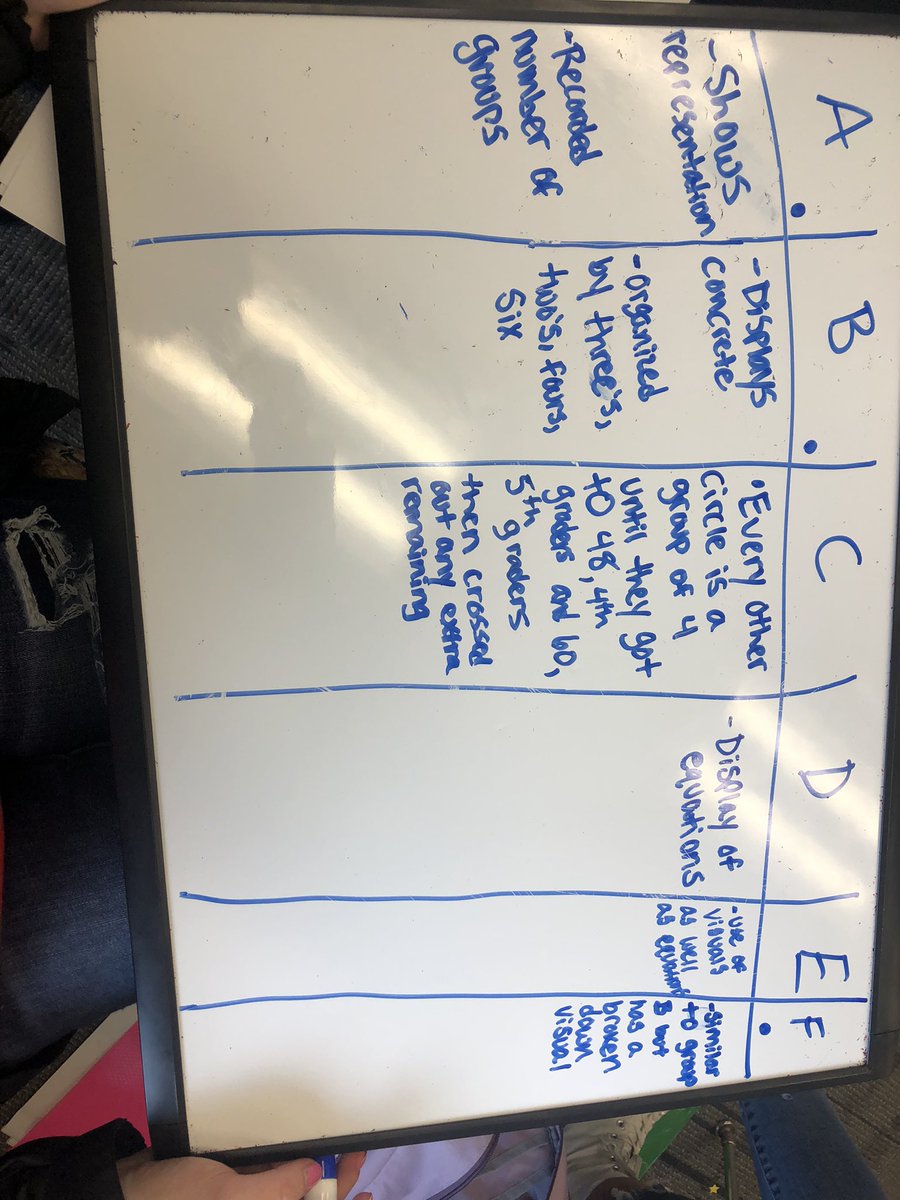 A
- Shows
representation
- Recorded
number of
groups
B
- Displays
concrete
- organized
by three's,
two's, fours,
six
C
• Every other
circle is a
group of 4
until they got
to 48, 4th
graders and 60,
5th graders
then crossed
out any extra
remaining
D
- Display of
equations
E
- use of
visuals
as well
as equations
F
- similar
to group
B but
has a
broken
down
visual